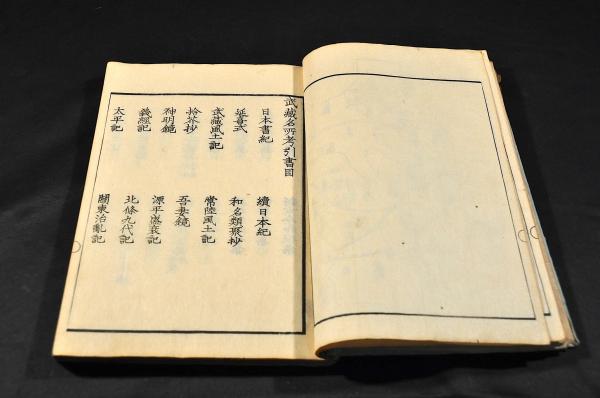 武藏名所考引書目
日本書紀
續日本紀
延喜式
和名類聚抄
武藏風土記
常陸風土記
拾芥抄
吾妻鏡
神明鏡
源平盛衰記
義經記
北條九代記
太平記
關東治亂記